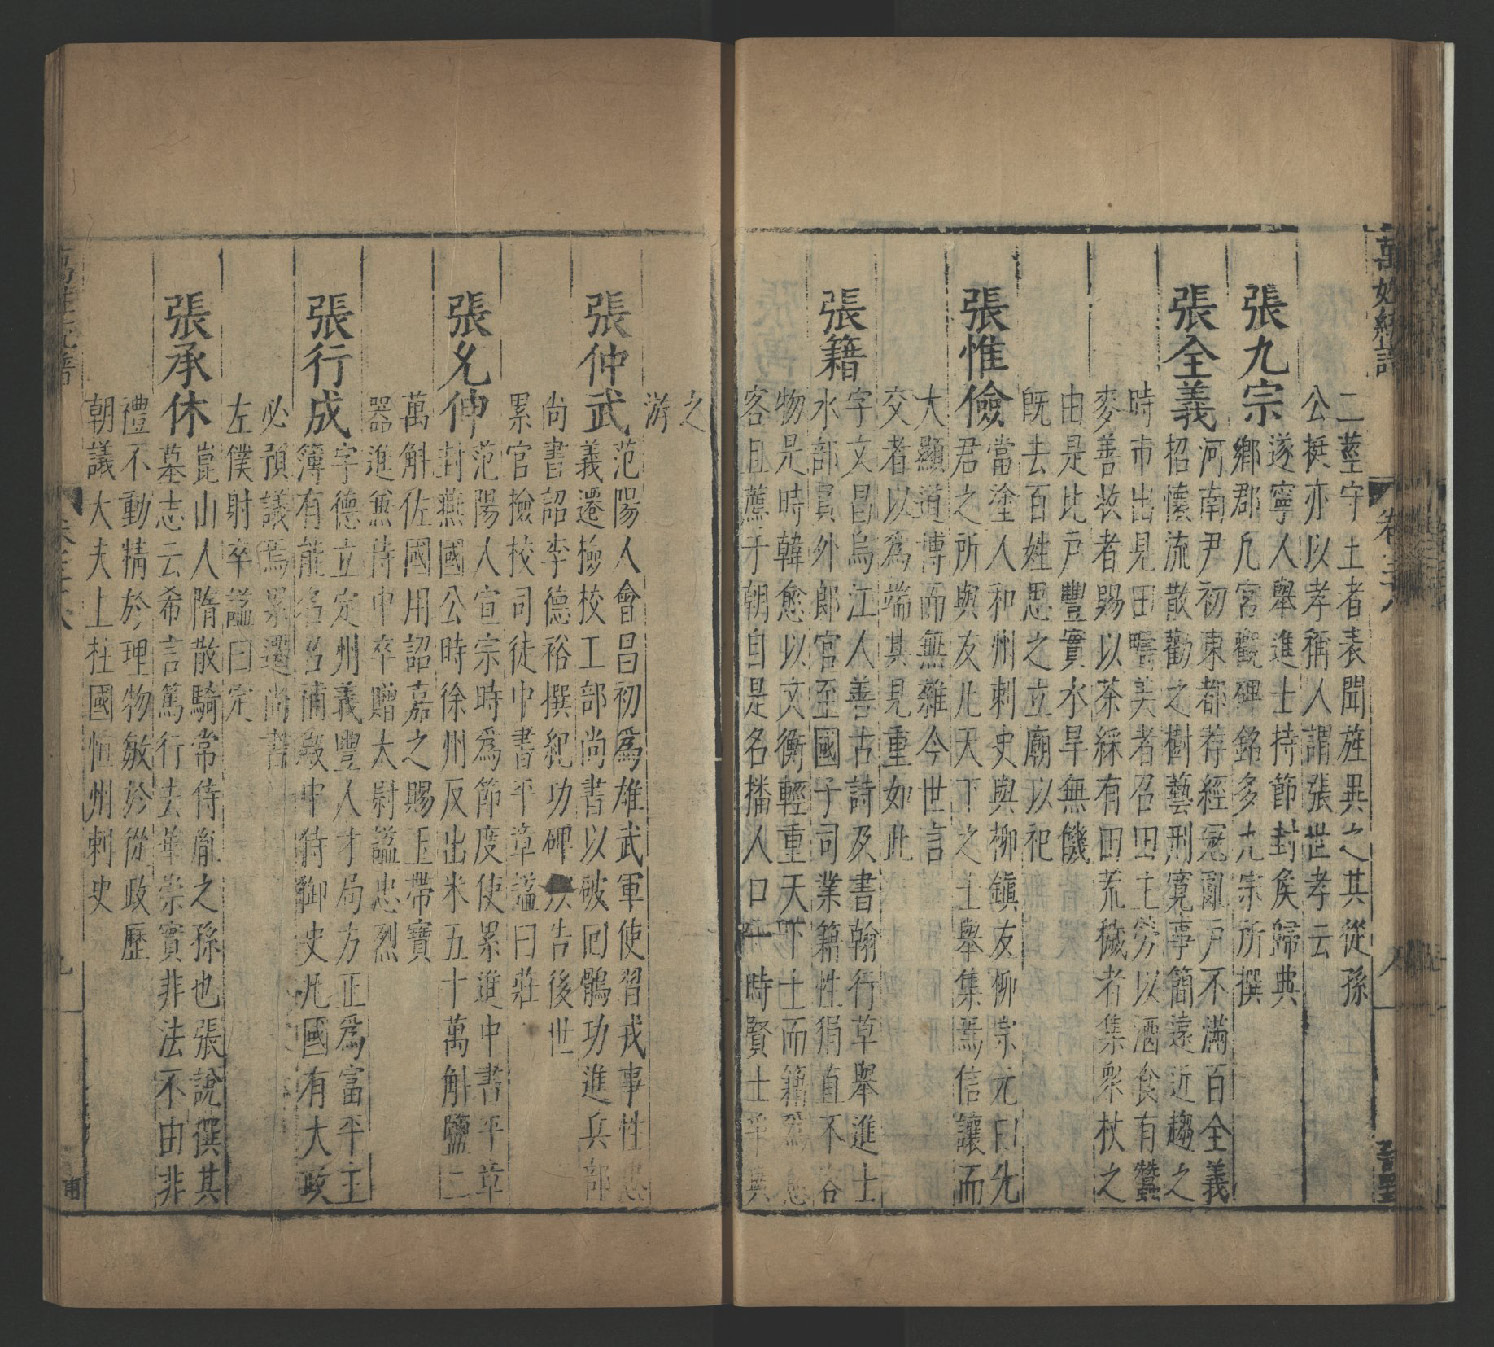 萬姓統譜
卷三十八
八
二莖守土者表聞旌異之其從孫
公挺亦以孝稱人謂張世孝云
張九宗
遂寧人舉進士持節封矦歸典
鄉郡凡宮觀碑銘多九宗所撰
張全義
河南尹初東都荐經寇亂戸不滿百全義
招懷流散勸之樹藝刑寬事簡遠近趨之
時市出見田疇美者召田主勞以酒食有蠶
麥善收者賜以茶綵有田荒穢者集衆杖之
由是比戸豐實水旱無饑
旣去百姓思之立廟以祀
張惟儉
當塗人和州刺史與柳鎮友柳宗元曰先
君之所與友凡天下之士舉集焉信讓而
大顯道博而無雜今世言
交者以爲端其見重如此
張籍
字文昌烏江人善古詩及書翰行草舉進士
水部員外郎官至國子司業籍性狷直不容
物是時韓愈以文衡輕重天下士而籍爲愈
客且薦于朝自是名播人口一時賢士爭與
之
游
張仲武
范陽人會昌初爲雄武軍使習戎事性忠
義遷檢校工部尚書以破回鶻功進兵部
尚書詔李德裕撰紀功碑以告後世
累官檢校司徒中書平章謚曰莊
張允伸
范陽人宣宗時爲節度使累進中書平章
封燕國公時徐州反出米五十萬斛鹽二
萬斛佐國用詔嘉之賜玉帶寶
器進兼侍中卒贈太尉謚忠烈
張行成
字德立定州義豐人才局方正爲富平主
簿有能名召補殿中侍御史凡國有大政
必預議焉累遷尚書
左僕射卒謚曰定
張承休
崑山人隋散騎常侍胤之孫也張說撰其
墓志云希言篤行去華崇實非法不由非
禮不動精於理物敏於從政歷
朝議大夫上柱國恒州刺史
萬姓統譜
卷三十八
九